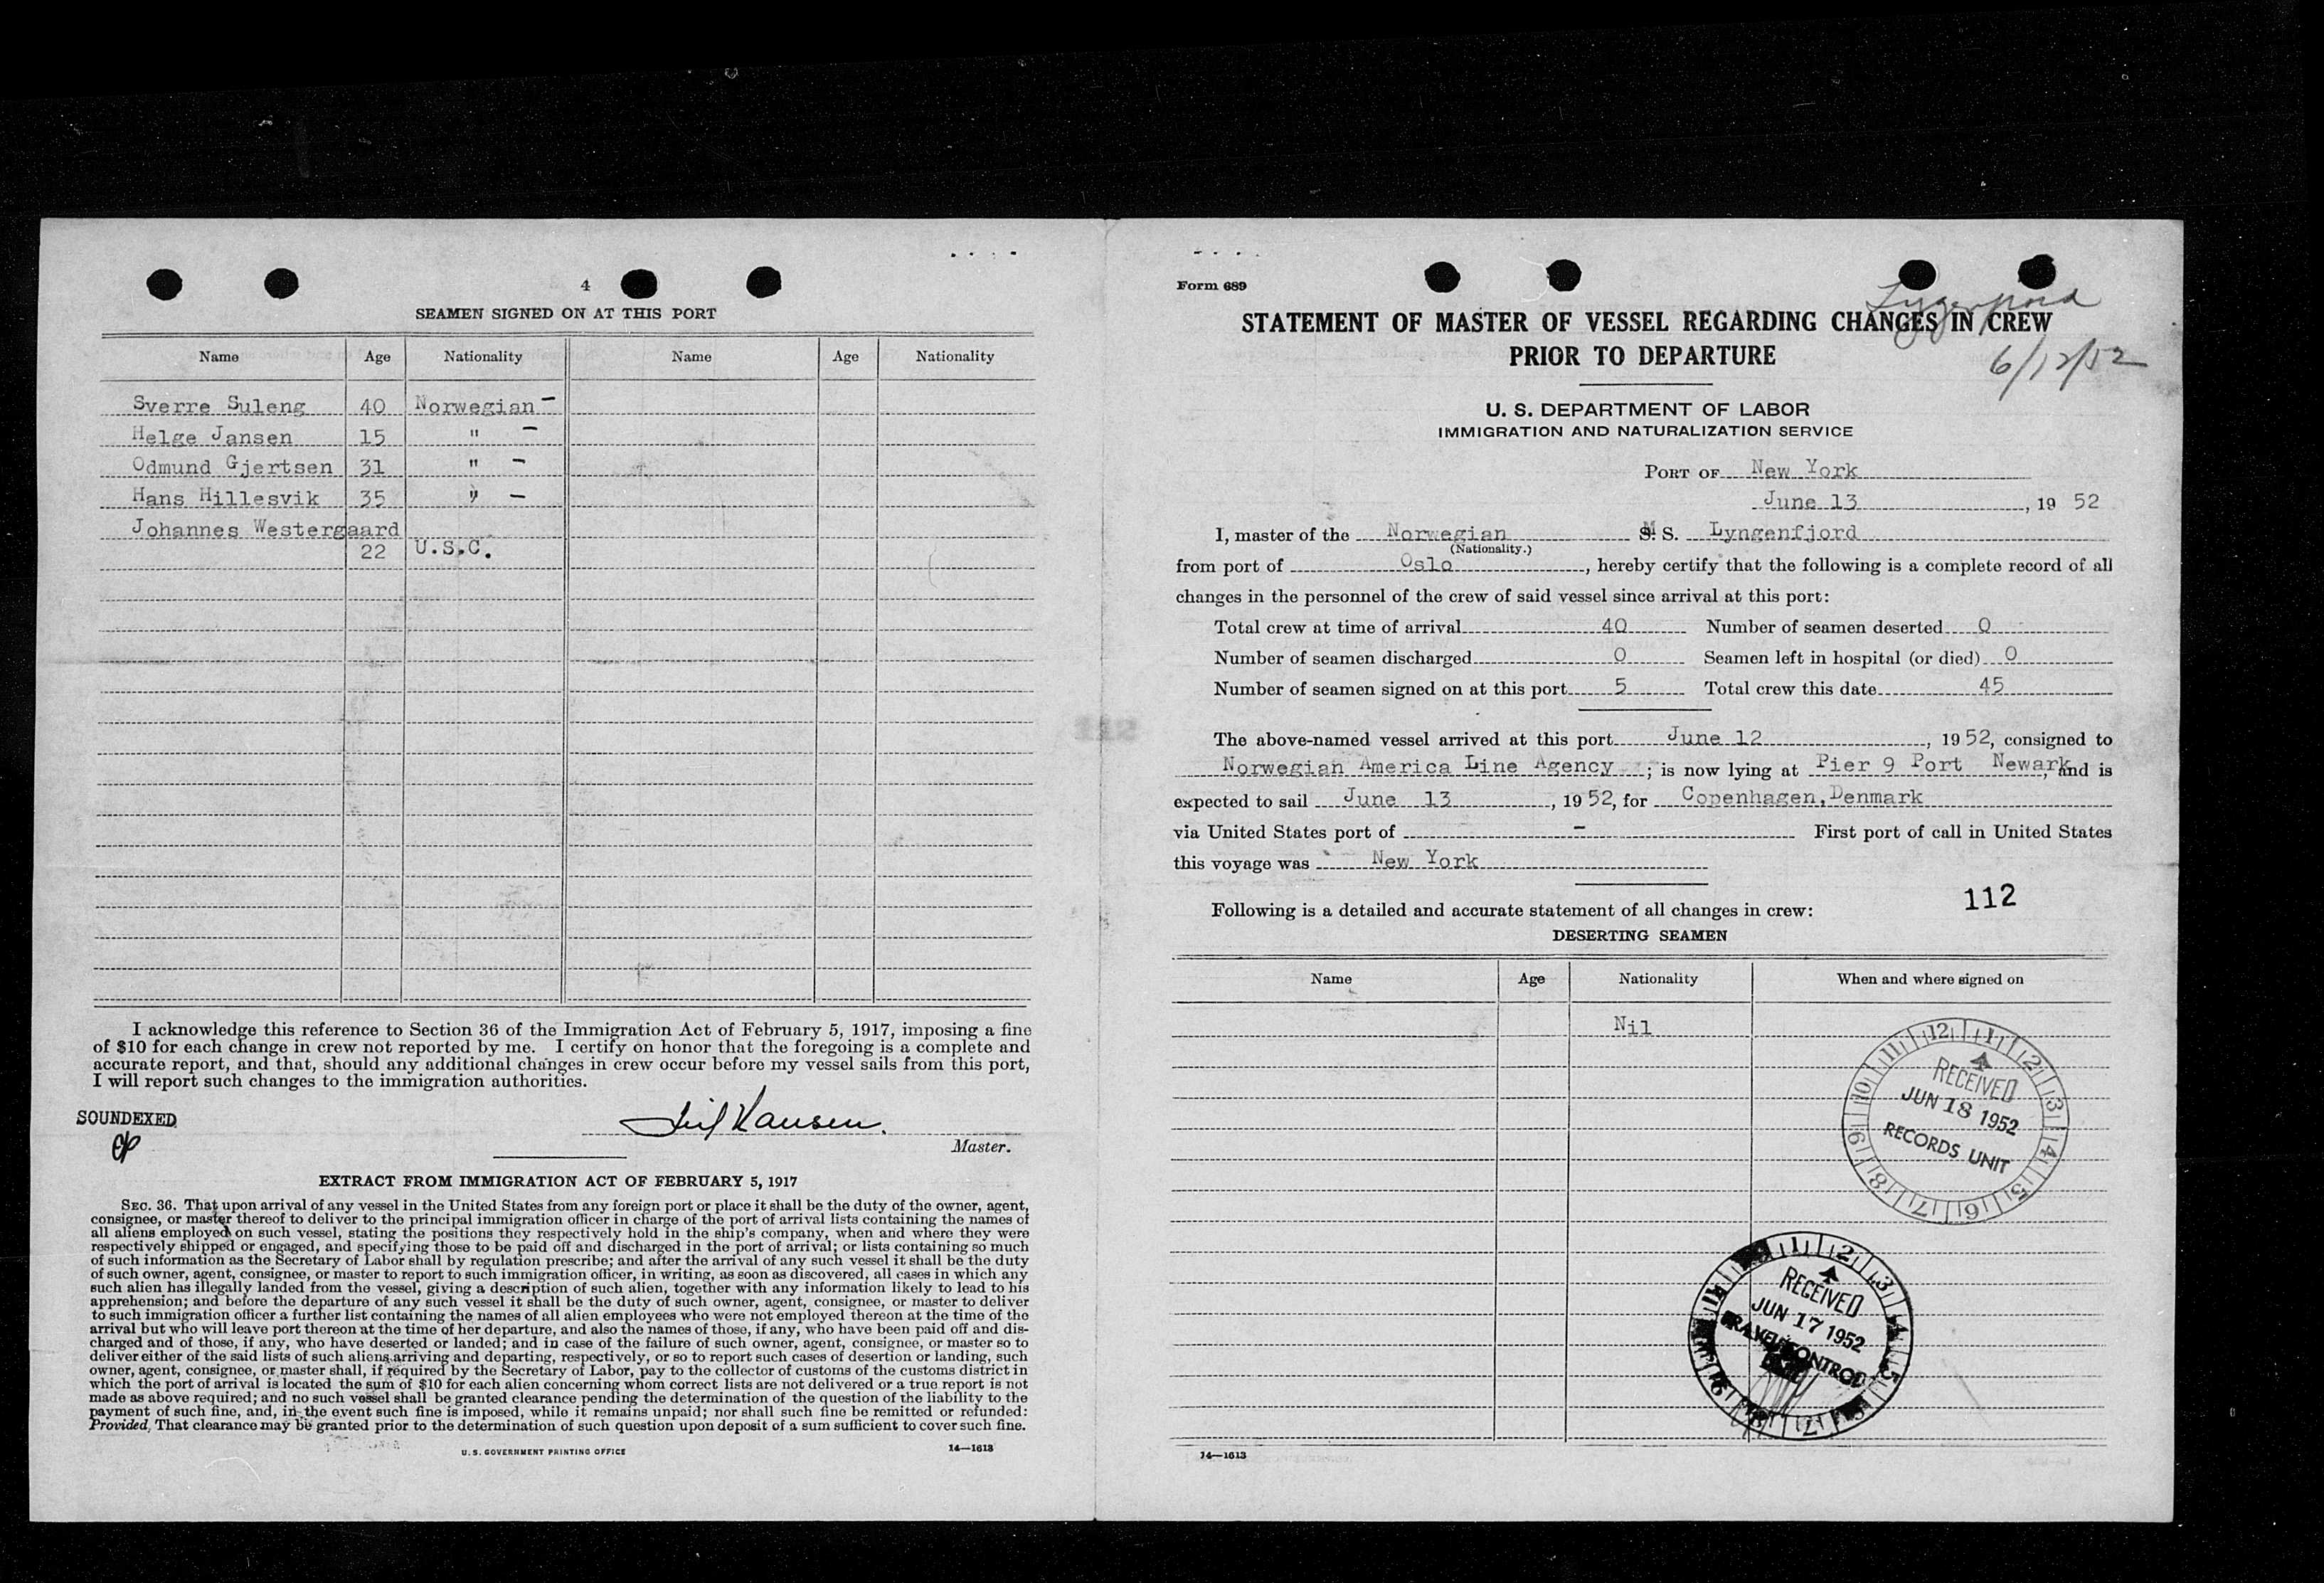 4
SEAMEN SIGNED ON AT THIS PORT
Name Age Nationality Name Age Nationality
Sverre Suleng 40 Norwegian -
Helge Jansen 15 " -
Odmund Gjertsen 31 " -
Hans Hillesvik 35 " -
Johannes Westergaard
22 U.S.C.
I acknowledge this reference to Section 36 of the Immigration Act of February 5, 1917, imposing a fine
of $10 for each change in crew not reported by me. I certify on honor that the foregoing is a complete and
accurate report, and that, should any additional changes in crew occur before my vessel sails from this port,
I will report such changes to the immigration authorities.
SOUNDEXED
Hansen.
Master.
EXTRACT FROM IMMIGRATION ACT OF FEBRUARY 5, 1917
SEC. 36. That upon arrival of any vessel in the United States from any foreign port or place it shall be the duty of the owner, agent,
consignee, or master thereof to deliver to the principal immigration officer in charge of the port of arrival lists containing the names of
all aliens employed on such vessel, stating the positions they respectively hold in the ship's company, when and where they were
respectively shipped or engaged, and specifying those to be paid off and discharged in the port of arrival; or lists containing so much
of such information as the Secretary of Labor shall by regulation prescribe; and after the arrival of any such vessel it shall be the duty
of such owner, agent, consignee, or master to report to such immigration officer, in writing, as soon as discovered, all cases in which any
such alien has illegally landed from the vessel, giving a description of such alien, together with any information likely to lead to his
apprehension; and before the departure of any such vessel it shall be the duty of such owner, agent, consignee, or master to deliver
to such immigration officer a further list containing the names of all alien employees who were not employed thereon at the time of the
arrival but who will leave port thereon at the time of her departure, and also the names of those, if any, who have been paid off and dis-
charged and of those, if any, who have deserted or landed; and in case of the failure of such owner, agent, consignee, or master so to
deliver either of the said lists of such aliens arriving and departing, respectively, or so to report such cases of desertion or landing, such
owner, agent, consignee, or master shall, if required by the Secretary of Labor, pay to the collector of customs of the customs district in
which the port of arrival is located the sum of $10 for each alien concerning whom correct lists are not delivered or a true report is not
made as above required; and no such vessel shall be granted clearance pending the determination of the question of the liability to the
payment of such fine, and, in the event such fine is imposed, while it remains unpaid; nor shall such fine be remitted or refunded:
Provided, That clearance may be granted prior to the determination of such question upon deposit of a sum sufficient to cover such fine.
U. S. GOVERNMENT PRINTING OFFICE 14—1613
Form 689
STATEMENT OF MASTER OF VESSEL REGARDING CHANGES IN CREW
PRIOR TO DEPARTURE
6/12/52
U. S. DEPARTMENT OF LABOR
IMMIGRATION AND NATURALIZATION SERVICE
PORT OF New York
June 13, 19 52
I, master of the Norwegian M S. Lyngenfjord
(Nationality.)
from port of Oslo, hereby certify that the following is a complete record of all
changes in the personnel of the crew of said vessel since arrival at this port:
Total crew at time of arrival 40 Number of seamen deserted 0
Number of seamen discharged 0 Seamen left in hospital (or died) 0
Number of seamen signed on at this port 5 Total crew this date 45
The above-named vessel arrived at this port June 12, 19 52, consigned to
Norwegian America Line Agency; is now lying at Pier 9 Port Newark, and is
expected to sail June 13, 19 52, for Copenhagen, Denmark
via United States port of - First port of call in United States
this voyage was New York
112
Following is a detailed and accurate statement of all changes in crew:
DESERTING SEAMEN
Name Age Nationality When and where signed on
Nil
12 1 2 3 4 5 6 7 8 9 10 11
RECEIVED
JUN 18 1952
RECORDS UNIT
1 2 3 4 5 7 8 9 11
RECEIVED
JUN 17 1952
TRAVEL CONTROL
14—1613